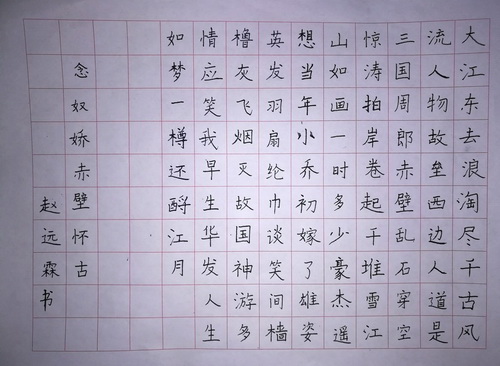 大江东去浪淘尽千古风
流人物故垒西边人道是
三国周郎赤壁乱石穿空
惊涛拍岸卷起千堆雪江
山如画一时多少豪杰遥
想当年小乔初嫁了雄姿
英发羽扇纶巾谈笑间樯
橹灰飞烟灭故国神游多
情应笑我早生华发人生
如梦一樽还酹江月
念奴娇赤壁怀古
赵远霖书